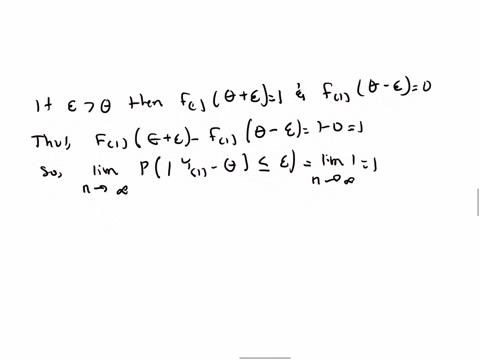 If ε > θ then F₍₁₎(θ+ε)=1 & F₍₁₎(θ-ε)=0
Thus, F₍₁₎(θ+ε)-F₍₁₎(θ-ε)=1-0=1
So, lim n→∞ P(|Y₍₁₎-θ| ≤ ε)= lim n→∞ 1=1